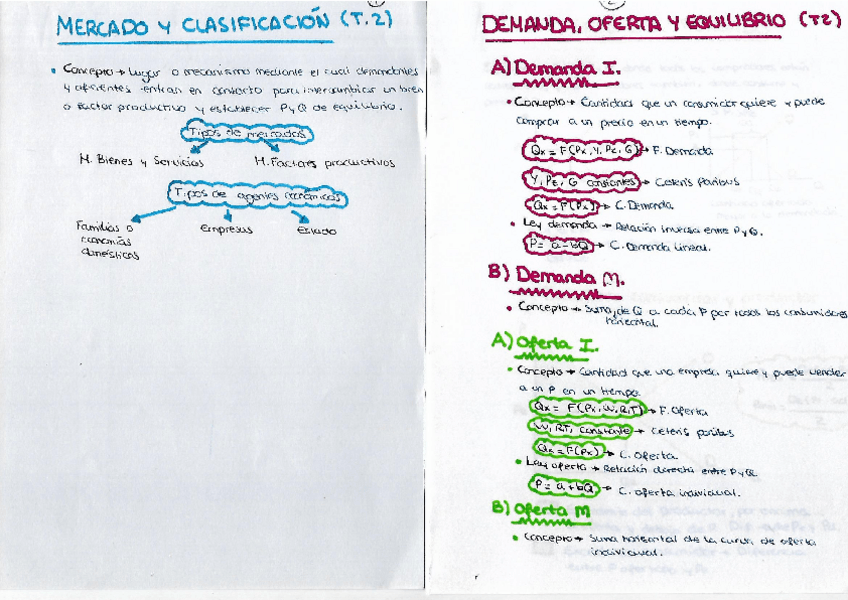 MERCADO Y CLASIFICACIÓN (T.2)
• Concepto → Lugar o mecanismo mediante el cual demandantes
y oferentes entran en contacto para intercambiar un bien
o factor productivo y establecer P y Q de equilibrio.
Tipos de mercados
M. Bienes y Servicios
M. Factores productivos
Tipos de agentes económicos
Familias o
economías
domésticas
Empresas
Estado
DEMANDA, OFERTA Y EQUILIBRIO (T2)
A) Demanda I.
• Concepto → Cantidad que un consumidor quiere y puede
comprar a un precio en un tiempo.
Qx = F(Px, Y, Pz, G) → F. Demanda
Y, Pz, G constantes → Ceteris Paribus
Qx = F(Px) → C. Demanda.
• Ley demanda → Relación inversa entre P y Q.
P = a - bQ → C. Demanda Lineal.
B) Demanda M.
• Concepto → Suma de Q a cada P por todos los consumidores
horizontal.
A) Oferta I.
• Concepto → Cantidad que una empresa quiere y puede vender
a un P en un tiempo.
Qx = F(Px, W, R, T) → F. Oferta
W, R, T, constante → Ceteris paribus
Qx = F(Px) → C. Oferta.
• Ley oferta → Relación directa entre P y Q.
P = a + bQ → C. oferta individual.
B) Oferta M
• Concepto → Suma horizontal de la curva de oferta
individual.